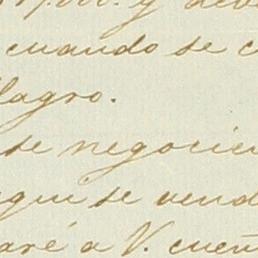 y deb
cuando se c
lagro.
se negocie
aqui se vend
aré á V. cuen